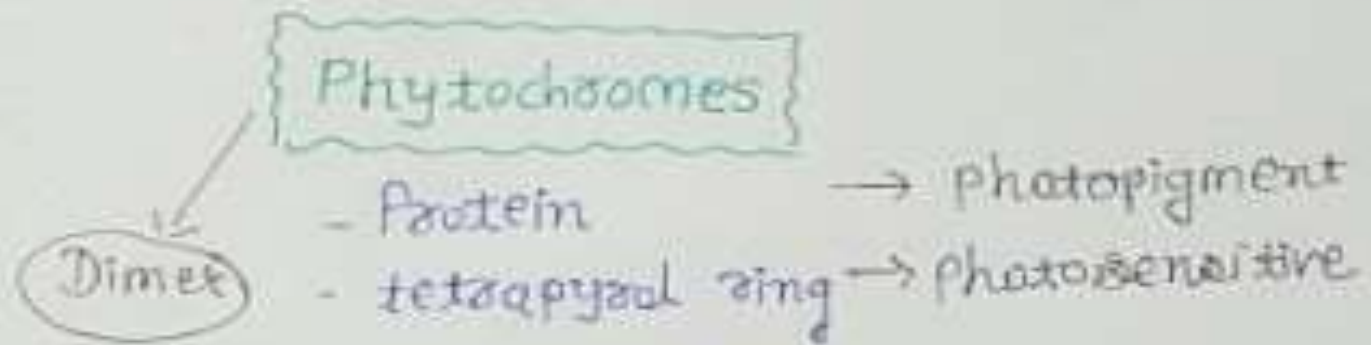 Phytochromes
- Protein → Photopigment
Dimer - tetrapyrol ring → photosensitive